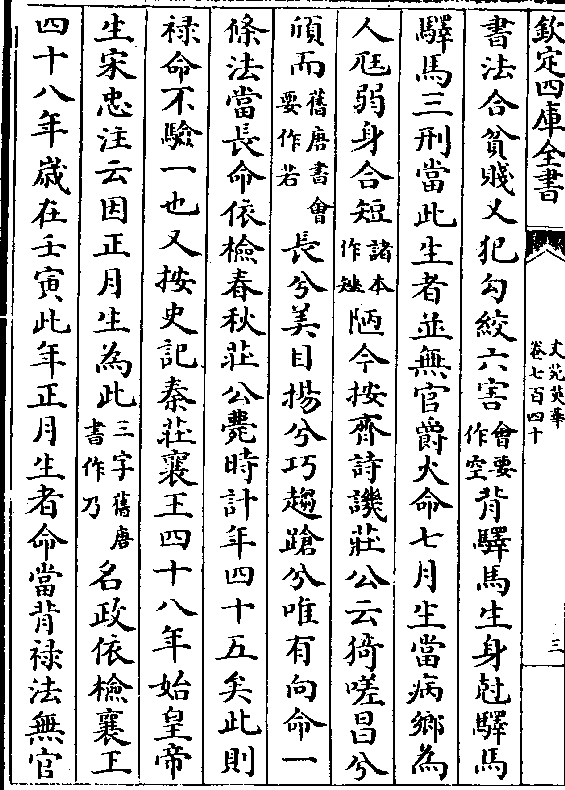 欽定四庫全書
文苑英華
卷七百四十
三
書法合貧賤又犯勾絞六害會要作空背驛馬生身尅驛馬
驛馬三刑當此生者並無官爵火命七月生當病鄉為
人尫弱身合短諸本作矬陋今按齊詩譏莊公云猗嗟昌兮
頎而舊唐書會要作若長兮美目揚兮巧趨蹌兮唯有向命一
條法當長命依檢春秋莊公薨時計年四十五矣此則
禄命不驗一也又按史記秦莊襄王四十八年始皇帝
生宋忠注云因正月生為此三字舊唐書作乃名政依檢襄王
四十八年歳在壬寅此年正月生者命當背禄法無官